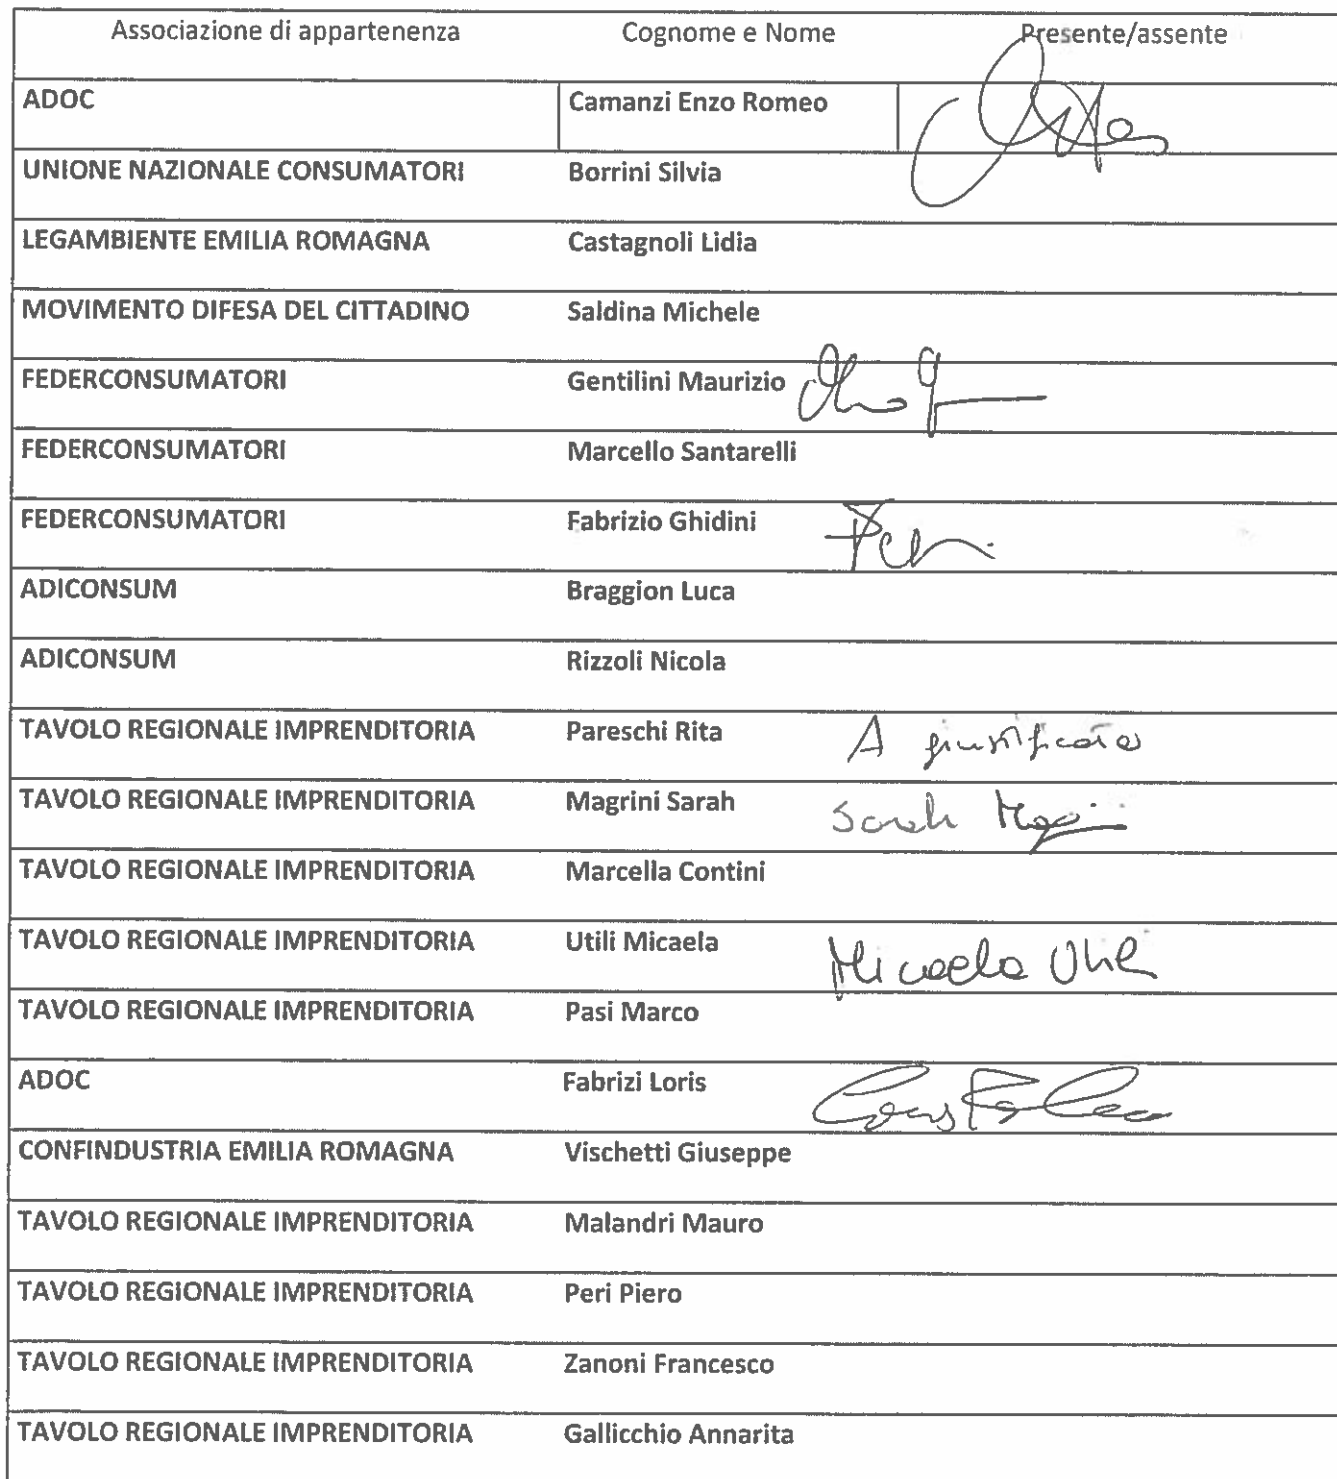 Associazione di appartenenza Cognome e Nome Presente/assente
ADOC Camanzi Enzo Romeo
UNIONE NAZIONALE CONSUMATORI Borrini Silvia
LEGAMBIENTE EMILIA ROMAGNA Castagnoli Lidia
MOVIMENTO DIFESA DEL CITTADINO Saldina Michele
FEDERCONSUMATORI Gentilini Maurizio
FEDERCONSUMATORI Marcello Santarelli
FEDERCONSUMATORI Fabrizio Ghidini
ADICONSUM Braggion Luca
ADICONSUM Rizzoli Nicola
TAVOLO REGIONALE IMPRENDITORIA Pareschi Rita A giustificato
TAVOLO REGIONALE IMPRENDITORIA Magrini Sarah Sarah
TAVOLO REGIONALE IMPRENDITORIA Marcella Contini
TAVOLO REGIONALE IMPRENDITORIA Utili Micaela Micaela Utili
TAVOLO REGIONALE IMPRENDITORIA Pasi Marco
ADOC Fabrizi Loris
CONFINDUSTRIA EMILIA ROMAGNA Vischetti Giuseppe
TAVOLO REGIONALE IMPRENDITORIA Malandri Mauro
TAVOLO REGIONALE IMPRENDITORIA Peri Piero
TAVOLO REGIONALE IMPRENDITORIA Zanoni Francesco
TAVOLO REGIONALE IMPRENDITORIA Gallicchio Annarita